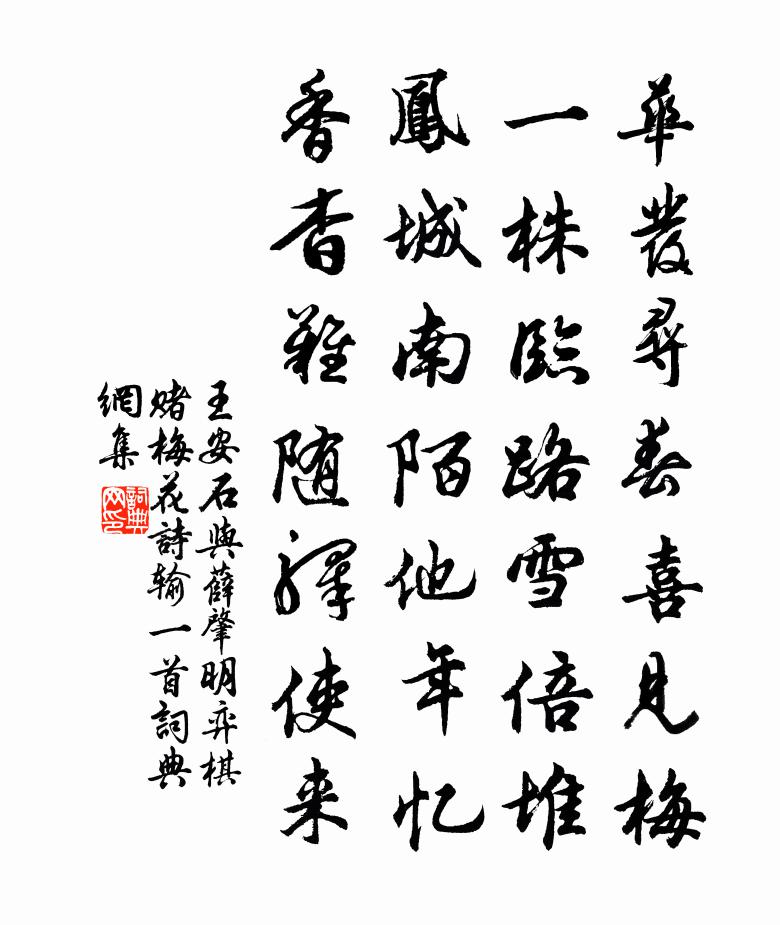 華發尋春喜見梅
一株臨路雪倍堆
鳳城南陌他年忆
香杳難随驛使来
王安石與薛肇明弈棋
赌梅花詩输一首詞典
網集
詞典網印